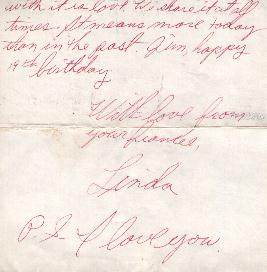 with it is love. We share it at all
times. It means more today
than in the past. Jim, happy
19th birthday
With love from
your fiancee,
Linda
P.S. I love you.